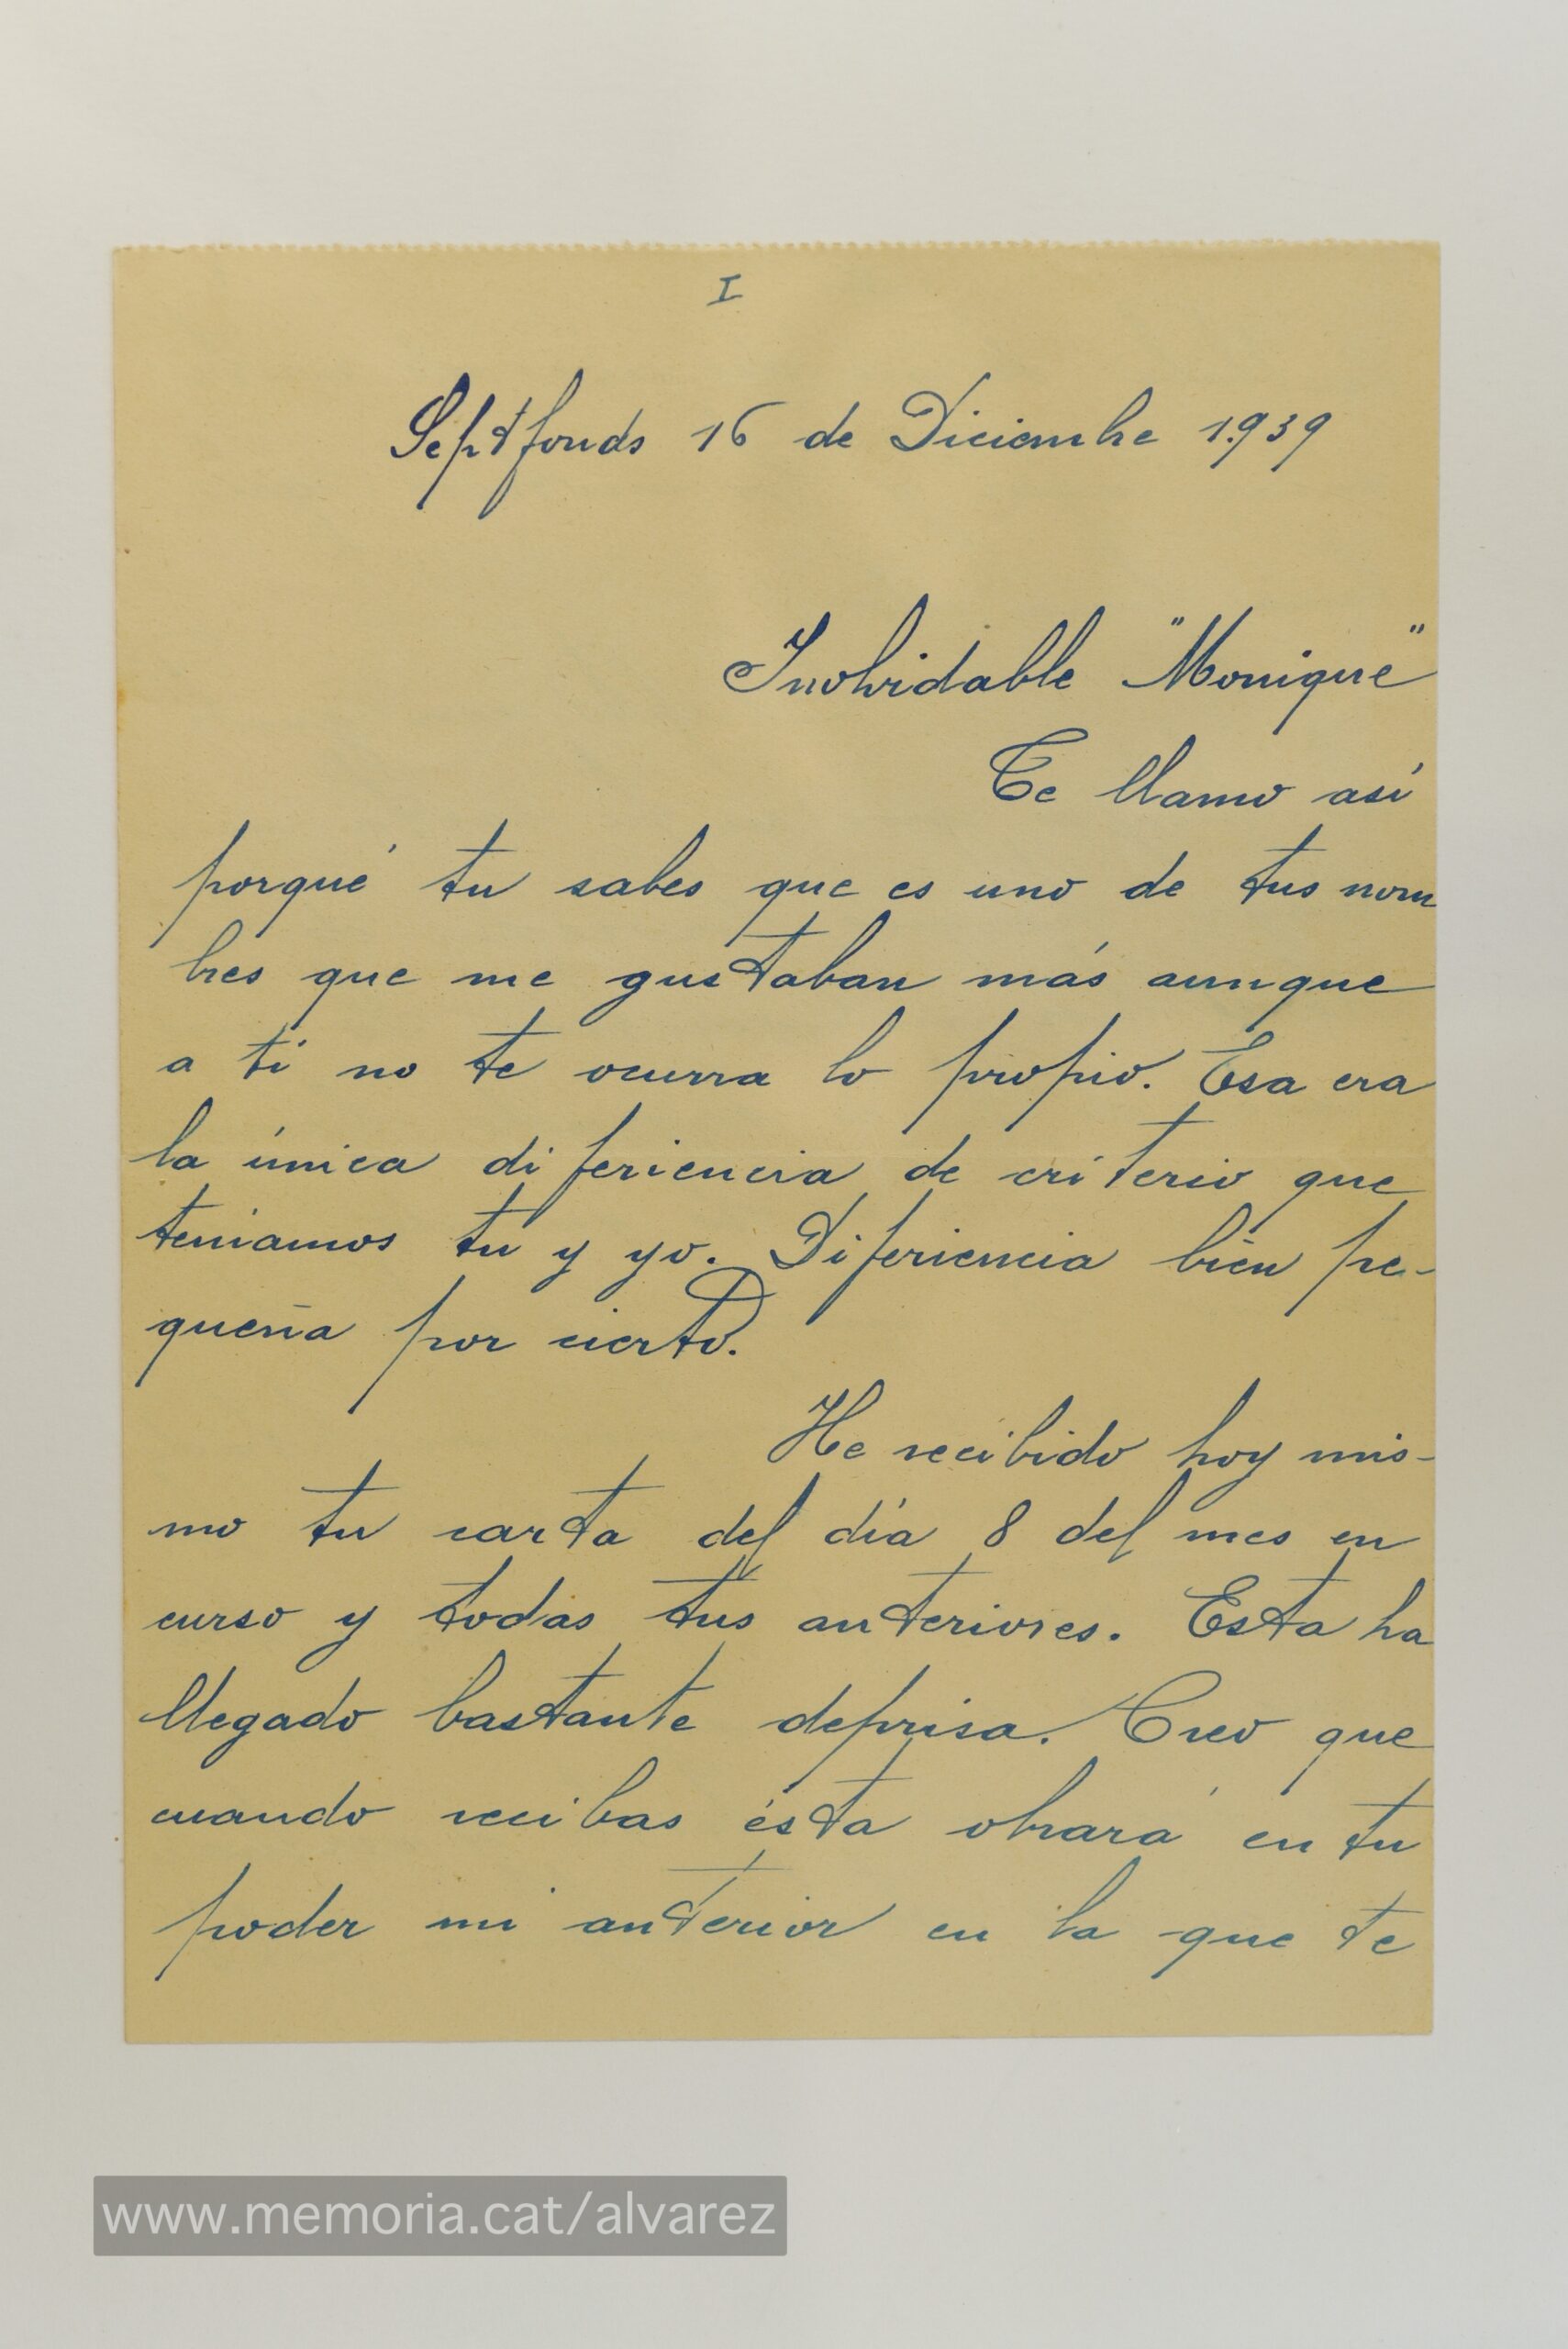 I
Septfonds 16 de Diciembre 1.939
Inolvidable "Monique"
Te llamo así
porqué tu sabes que es uno de tus nom
bres que me gustaban más aunque
a ti no te ocurra lo propio. Esa era
la única diferiencia de criterio que
teniamos tu y yo. Diferiencia bien pe-
queña por cierto.
He recibido hoy mis-
mo tu carta del día 8 del mes en
curso y todas tus anteriores. Esta ha
llegado bastante deprisa. Creo que
cuando recibas ésta obrará en tu
poder mi anterior en la que te
www.memoria.cat/alvarez